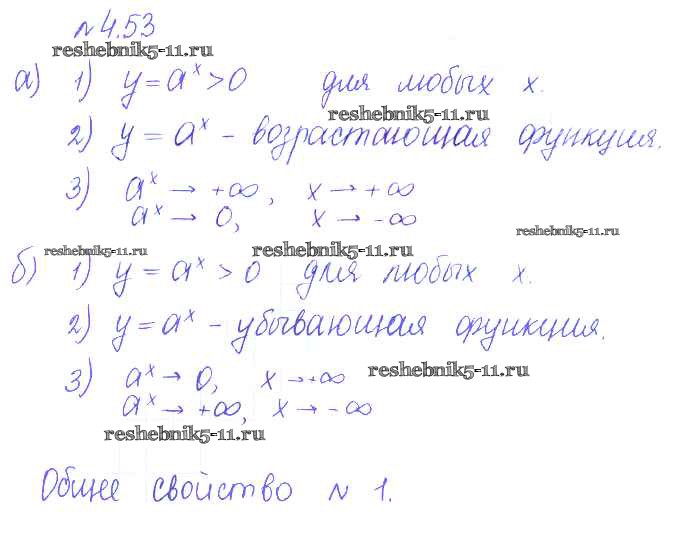 №4.53
reshebnik5-11.ru
а) 1) y = aˣ > 0 для любых x.
reshebnik5-11.ru
2) y = aˣ - возрастающая функция.
3) aˣ → +∞, x → +∞
aˣ → 0, x → -∞
reshebnik5-11.ru
reshebnik5-11.ru reshebnik5-11.ru
б) 1) y = aˣ > 0 для любых x.
2) y = aˣ - убывающая функция.
3) aˣ → 0, x → +∞
reshebnik5-11.ru
aˣ → +∞, x → -∞
reshebnik5-11.ru
Общее свойство № 1.